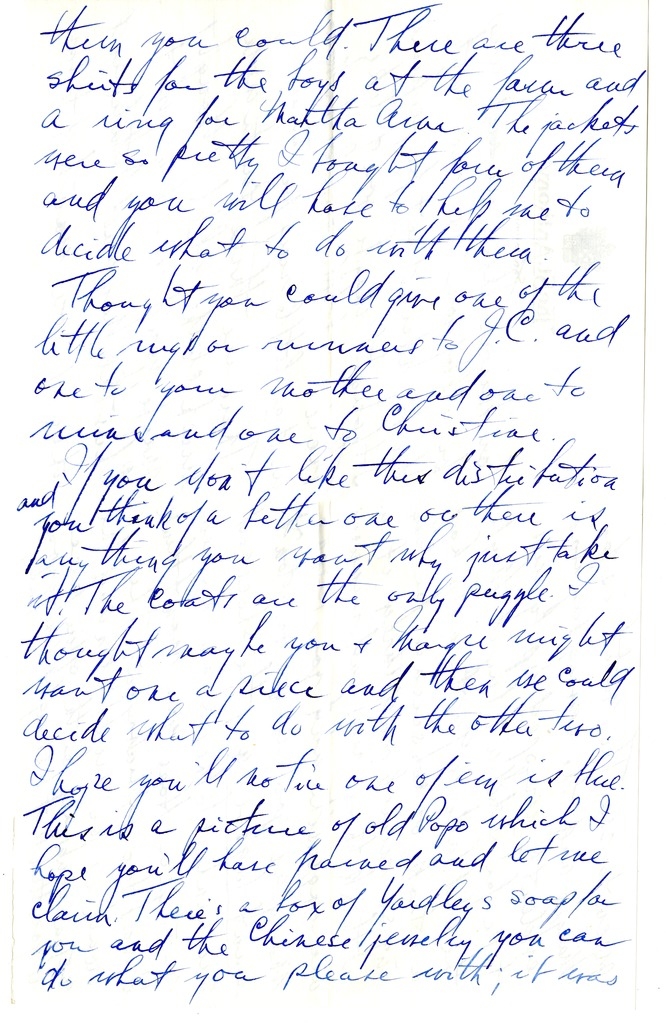 them you could. There are three
shirts for the boys at the farm and
a ring for Martha Ann. The jackets
were so pretty I bought four of them
and you will have to help me to
decide what to do with them.
Thought you could give one of the
little rugs or runners to J.C. and
one to your mother and one to
mine and one to Christine.
If you don't like this distribution
and you think of a better one or there is
anything you want why just take
it. The coats are the only puzzle. I
thought maybe you & might
want one a piece and then we could
decide what to do with the other two.
I hope you'll notice one of em is blue.
This is a picture of old Popo which I
hope you'll have framed and let me
claim. There's a box of Yardley's soap for
you and the Chinese jewelry you can
do what you please with; it was